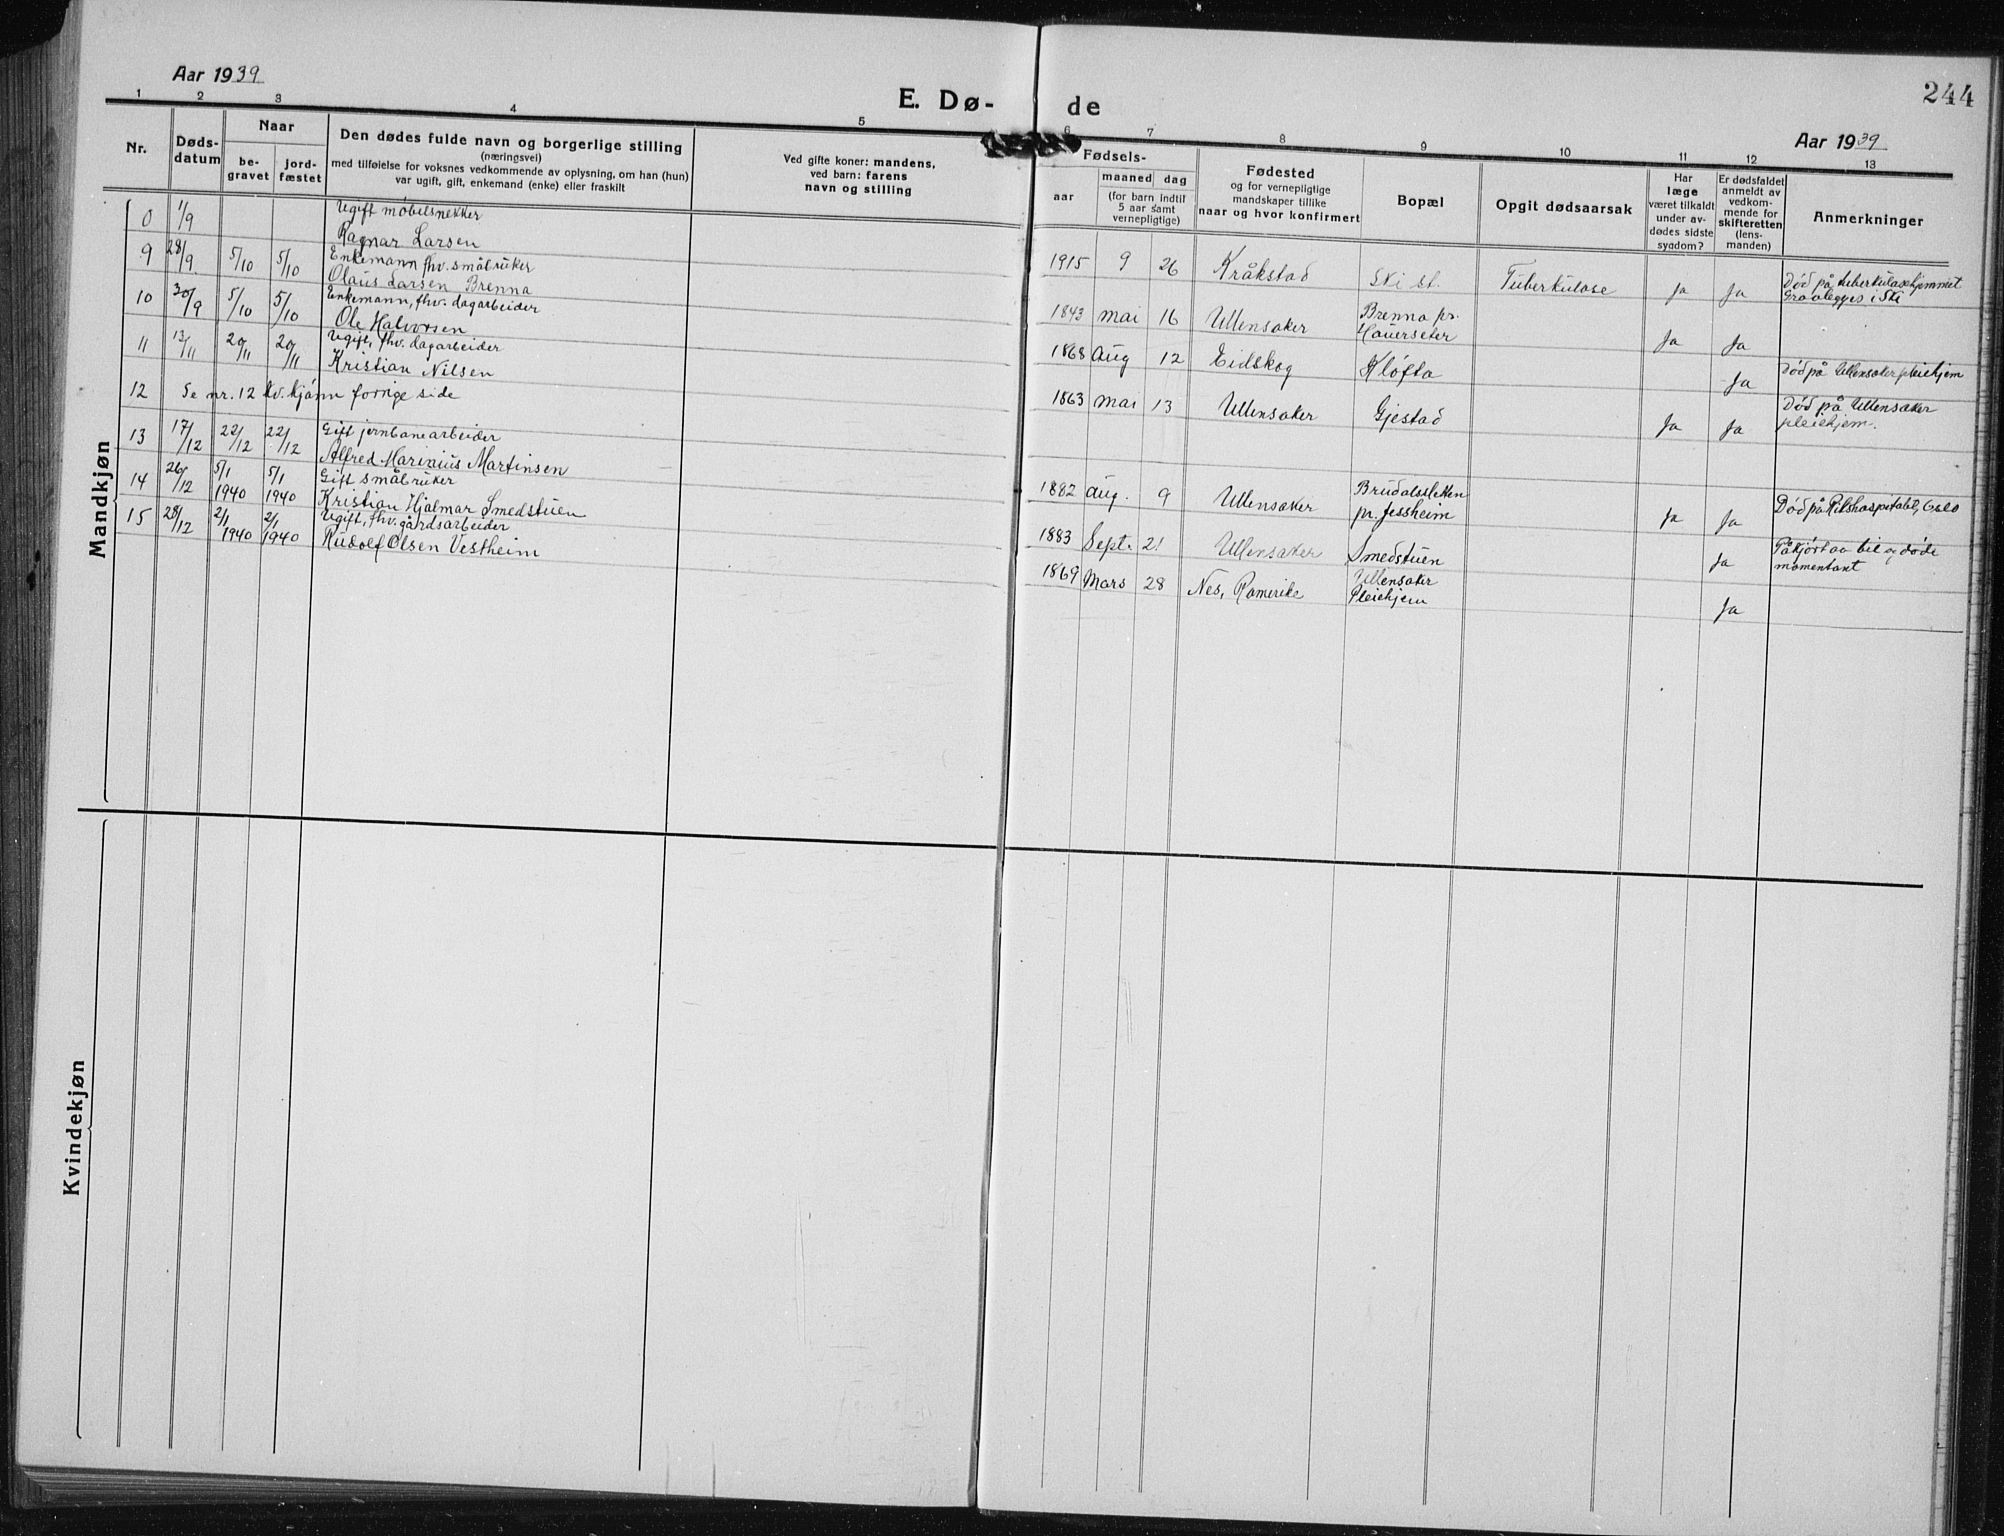 Aar 1939
E. Dø-
de
244
Aar 1939
1 2 3 4 5 6 7 8 9 10 11 12 13
Nr.
Døds-
datum
Naar
be-
gravet
jord-
fæstet
Den dødes fulde navn og borgerlige stilling
(næringsvei)
med tilføielse for voksnes vedkommende av oplysning, om han (hun)
var ugift, gift, enkemand (enke) eller fraskilt
Ved gifte koner: mandens,
ved barn: farens
navn og stilling
Fødsels-
aar
maaned
dag
(for barn indtil
5 aar samt
vernepligtige)
Fødested
og for vernepligtige
mandskaper tillike
naar og hvor konfirmert
Bopæl
Opgit dødsaarsak
Har
læge
været tilkaldt
under av-
dødes sidste
sygdom?
Er dødsfaldet
anmeldt av
vedkom-
mende for
skifteretten
(lens-
manden)
Anmerkninger
Mandkjøn
0 1/9 Ugift møbelsnekker
Ragnar Larsen
1915 9 26 Kråkstad Ski st. Tuberkulose Ja Ja Død på tuberkulosehjemmet
Gravlegges i Ski
9 28/9 5/10 5/10 Enkemann fhv. småbruker
Olaus Larsen Brenna
1843 mai 16 Ullensaker Brenna pr.
Hauerseter Ja Ja
10 30/9 5/10 5/10 Enkemann, fhv. dagarbeider
Ole Halvorsen
1868 Aug 12 Eidskog Kløfta Ja Død på Ullensaker pleiehjem
11 13/11 20/11 20/11 Ugift, fhv. dagarbeider
Kristian Nilsen
1863 mai 13 Ullensaker Gjestad Ja Ja Død på Ullensaker
pleiehjem.
12 Se nr. 12 Kv.kjønn forrige side
13 17/12 22/12 22/12 Gift jernbanearbeider
Alfred Marinius Martinsen
1882 Aug. 9 Ullensaker Brudalssletten
pr. Jessheim Ja Ja Død på Rikshospitalet, Oslo
14 26/12 5/1 1940 5/1 1940 Gift småbruker
Kristian Hjalmar Smedstuen
1883 Sept. 21 Ullensaker Smedstuen Ja Påkjørt av bil og døde
momentant
15 28/12 2/1 1940 2/1 1940 Ugift, fhv. gårdsarbeider
Rudolf Olsen Vestheim
1869 Mars 28 Nes, Romerike Ullensaker
Pleiehjem Ja
Kvindekjøn